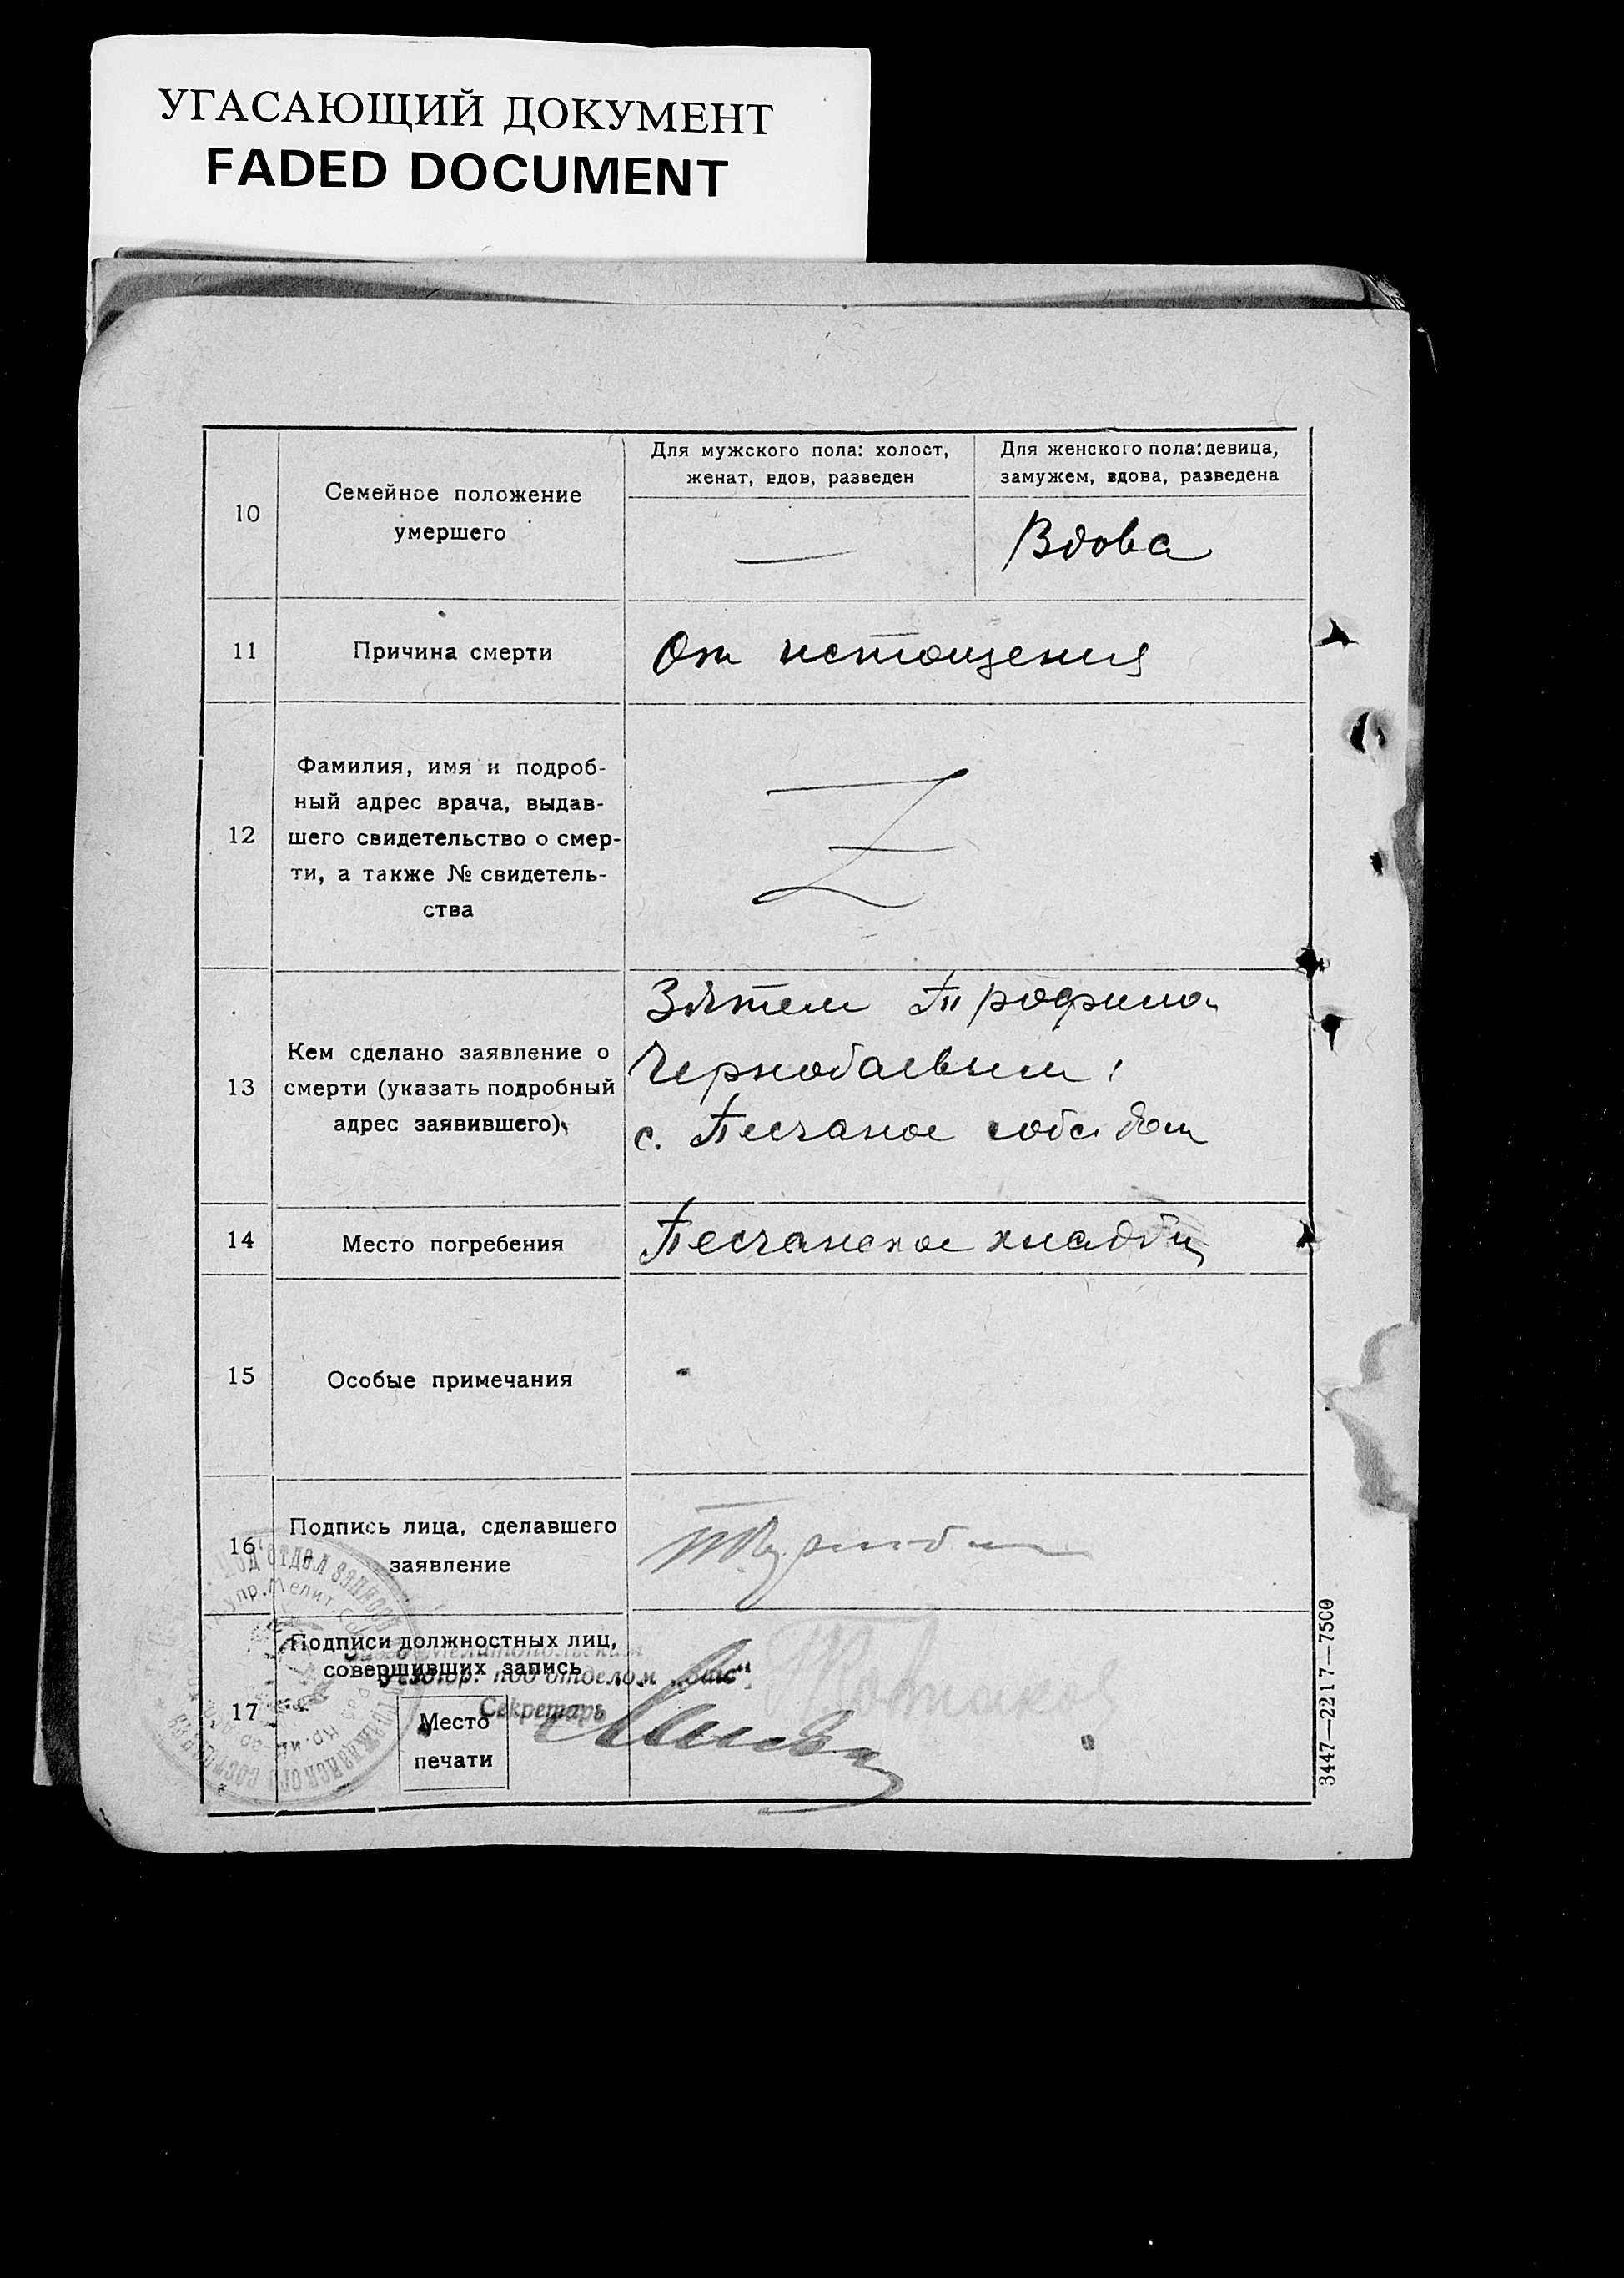 УГАСАЮЩИЙ ДОКУМЕНТ
FADED DOCUMENT
10
Семейное положение
умершего
Для мужского пола: холост,
женат, вдов, разведен
Для женского пола: девица,
замужем, вдова, разведена
—
Вдова
11
Причина смерти
От истощения
12
Фамилия, имя и подроб-
ный адрес врача, выдав-
шего свидетельство о смер-
ти, а также № свидетель-
ства
13
Кем сделано заявление о
смерти (указать подробный
адрес заявившего)
Зятем Трофимом
Чернобаевым
с. Песчаное собс. дом
14
Место погребения
Песчанское кладбищ
15
Особые примечания
16
Подпись лица, сделавшего
заявление
17
Подписи должностных лиц,
совершивших запись
Мелитопольским
под отделом
Секретарь
Место
печати
Под'отдел записей гражданского состояния
упр. Мелит.
3447—2217—7500